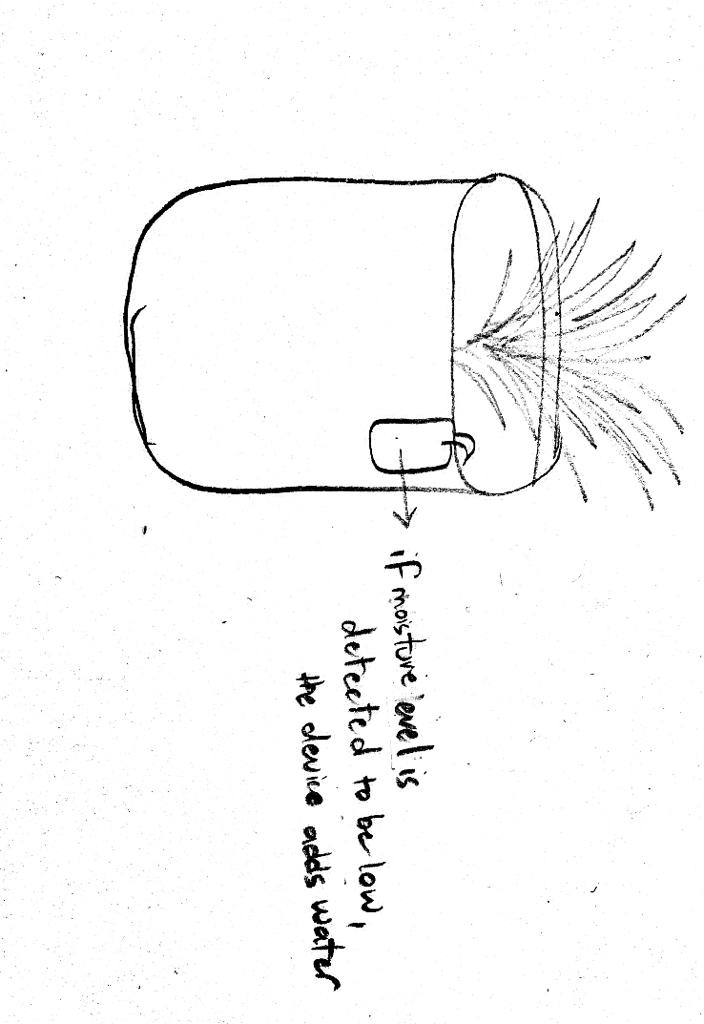 if moisture level is
detected to be low,
the device adds water